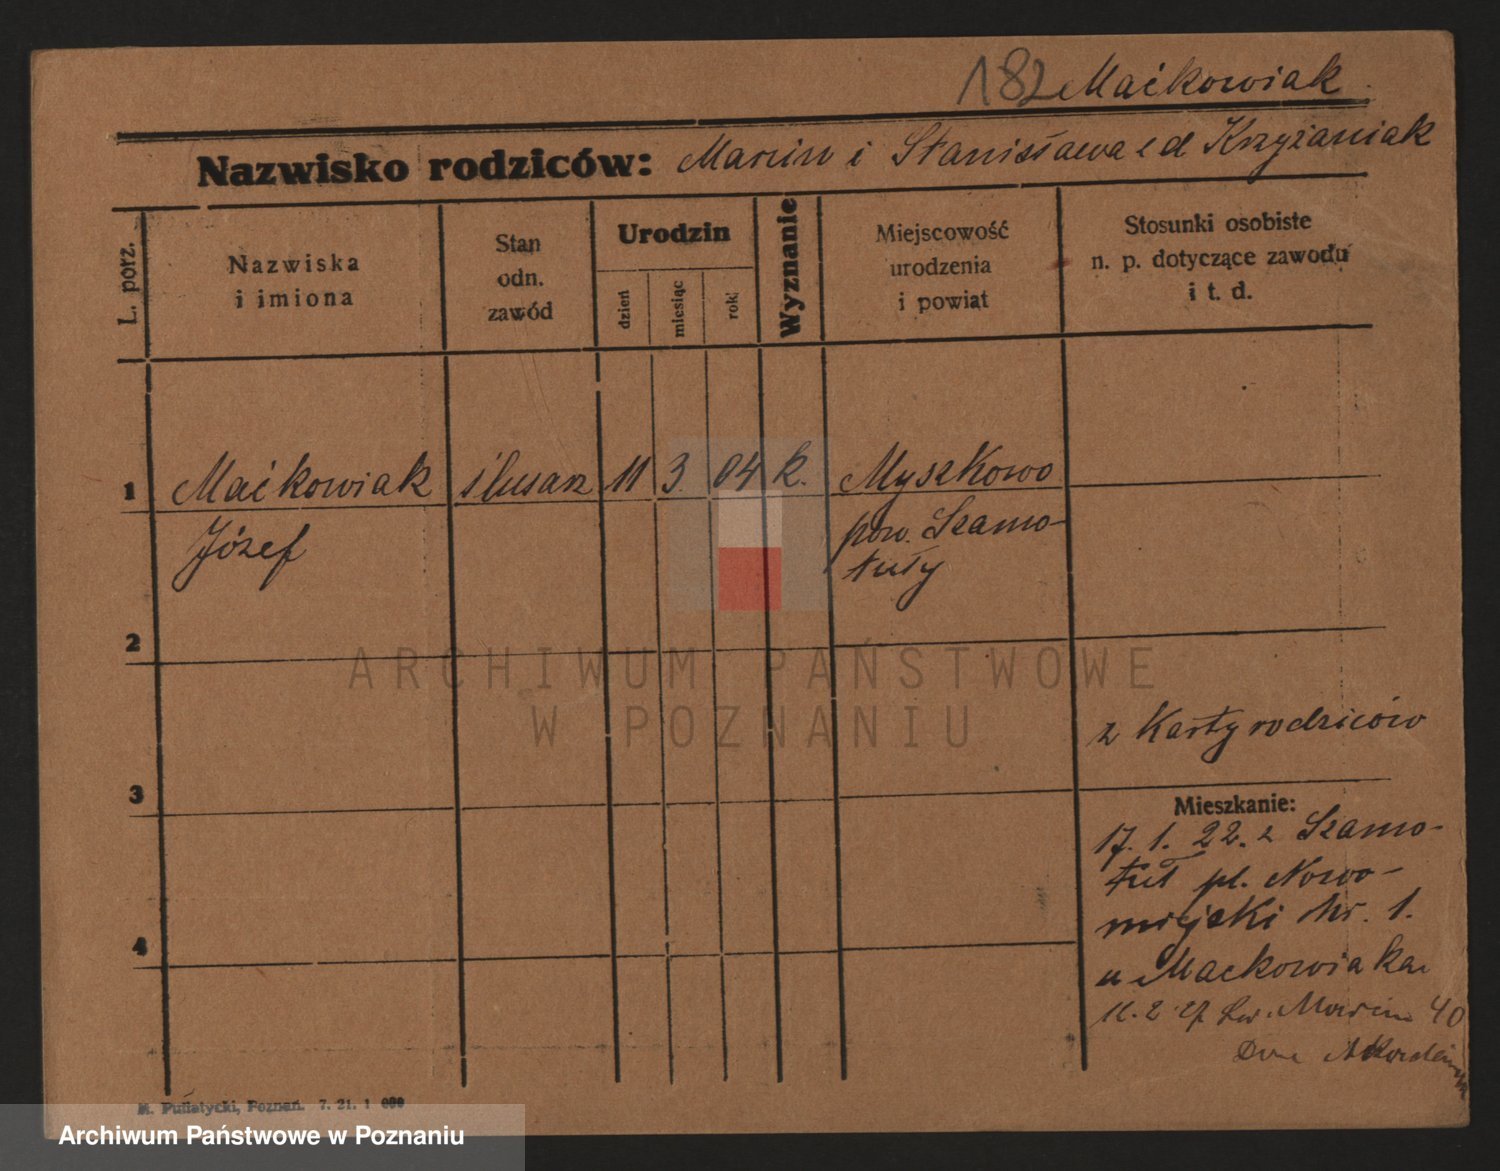 182 Maćkowiak
Nazwisko rodziców: Marcin i Stanisława z d Krzyżaniak
L. porz.
Nazwiska
i imiona
Stan
odn.
zawód
Urodzin
dzień
miesiąc
rok
Wyznanie
Miejscowość
urodzenia
i powiat
Stosunki osobiste
n. p. dotyczące zawodu
i t. d.
1 Maćkowiak ślusarz 11 3 04 k. Myszkowo
Józef pow. Szamo-
tuły
2
z Karty rodziców
3
Mieszkanie:
17. 1. 22. z Szamo-
tuł pl. Nowo-
miejski Nr. 1.
4
u Maćkowiaka
11. 2 27 Św. Marcin 40
Dom
M. Putiatycki, Poznań. 7. 21. 1 000
ARCHIWUM PAŃSTWOWE
W POZNANIU
Archiwum Państwowe w Poznaniu